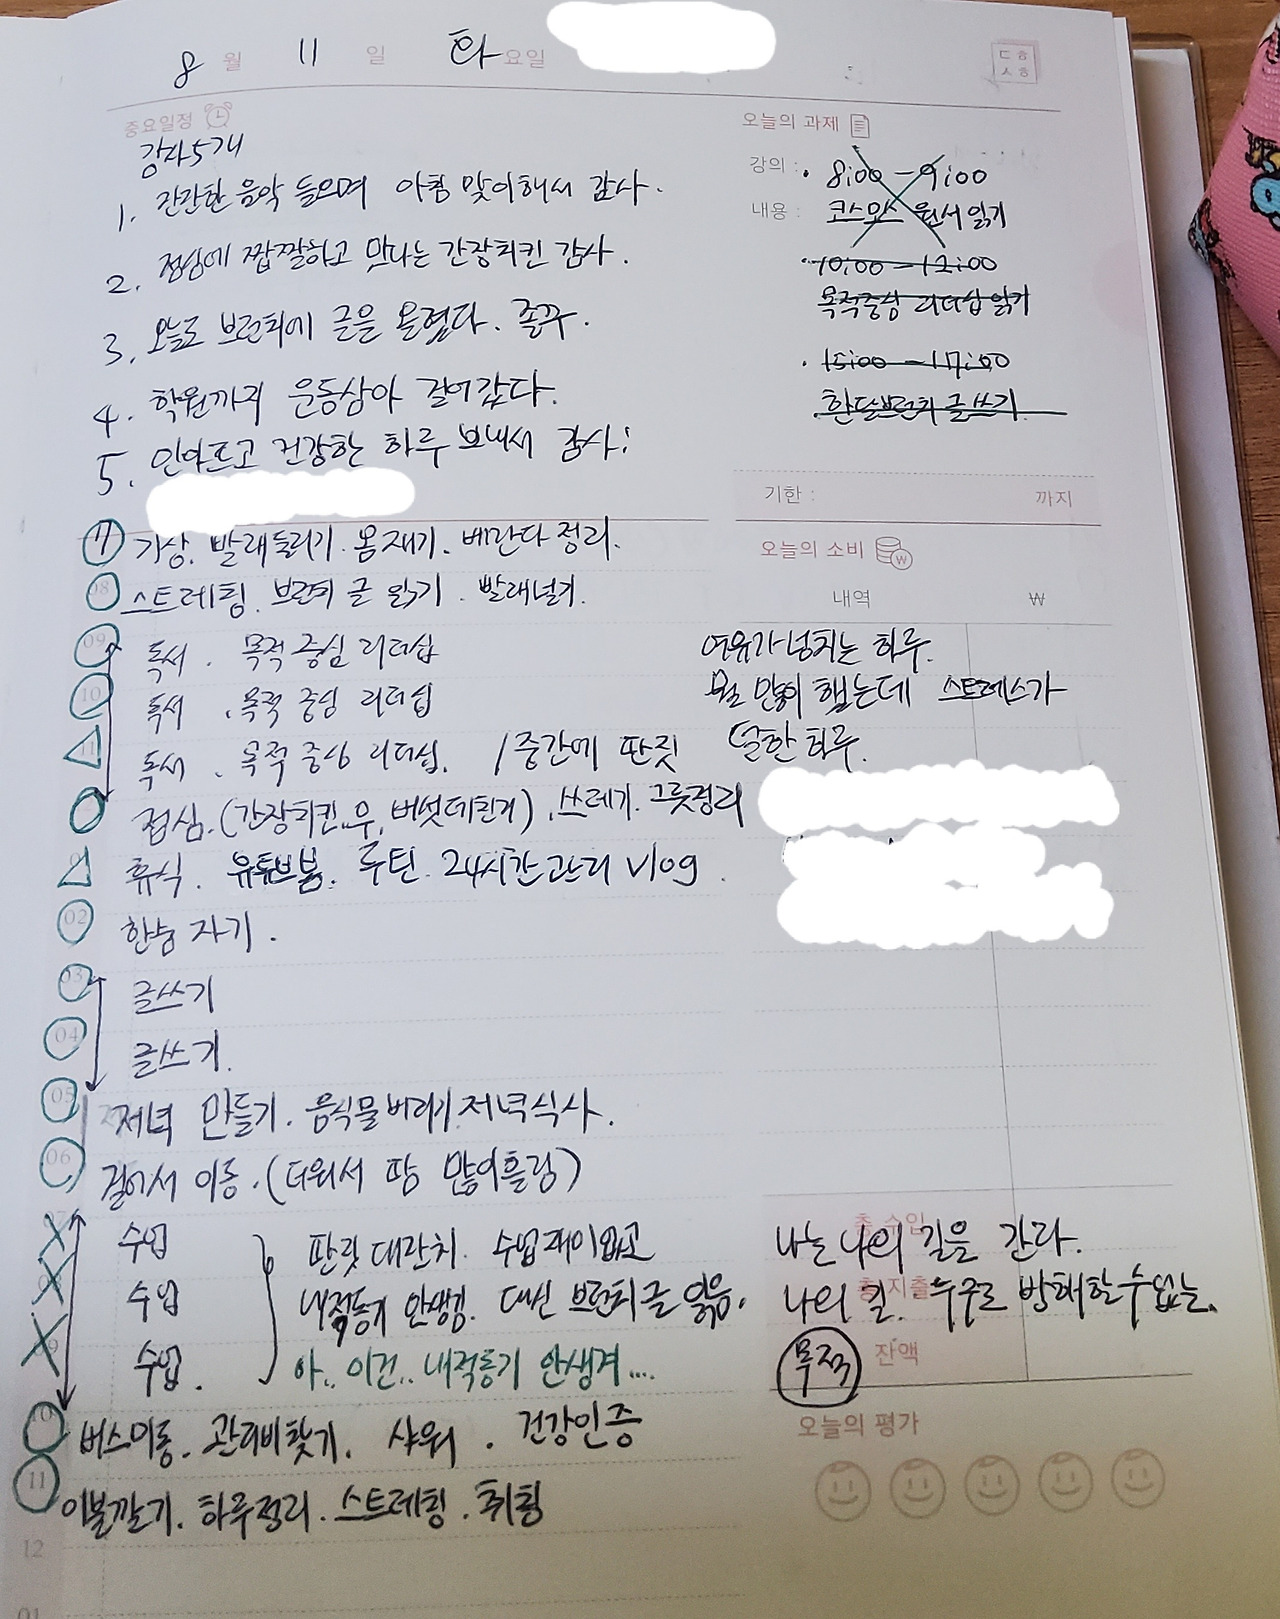 8 월 11 일 화 요일
ㄷㅎ
ㅅㅎ
중요일정
감사5개
1. 잔잔한 음악 들으며 아침 맞이해서 감사.
2. 점심에 짭짤하고 맛나는 간장치킨 감사.
3. 오늘도 브런치에 글을 올렸다. 굿꾸.
4. 학원까지 운동삼아 걸어갔다.
5. 안아프고 건강한 하루 보내서 감사!
오늘의 과제
강의 : • 8:00 - 9:00
내용 : 코스모스 원서 읽기
10:00 - 12:00
목적중심 리더십 읽기
• 15:00 - 17:00
한달브런치 글쓰기
기한 : 까지
오늘의 소비
내역 ₩
7 기상. 빨래돌리기. 몸재기. 베란다 정리.
08 스트레칭. 브런치 글 읽기. 빨래널기.
09 독서. 목적 중심 리더십
10 독서. 목적 중심 리더십
11 독서. 목적 중심 리더십. / 중간에 딴짓
점심. (간장치킨, 무, 버섯데친거), 쓰레기. 그릇정리
휴식. 유튜브봄. 루틴. 24시간관리 vlog.
02 한숨 자기.
03 글쓰기
04 글쓰기.
05 저녁 만들기. 음식물버리기. 저녁식사.
06 걸어서 이동. (더워서 땀 많이흘림)
07 수업 딴짓 대잔치. 수업재미없고
08 수업 내적동기 안생김. 대신 브런치글 읽음.
09 수업. 아.. 이건.. 내적동기 안생겨....
10 버스이동. 관리비찾기. 샤워. 건강인증
11 이불깔기. 하루정리. 스트레칭. 취침
12
01
여유가넘치는 하루.
뭘 많이 했는데 스트레스가
덜한 하루.
총 수입
나는 나의 길을 간다.
총 지출
나의 길. 누구도 방해할수없는.
목적 잔액
오늘의 평가